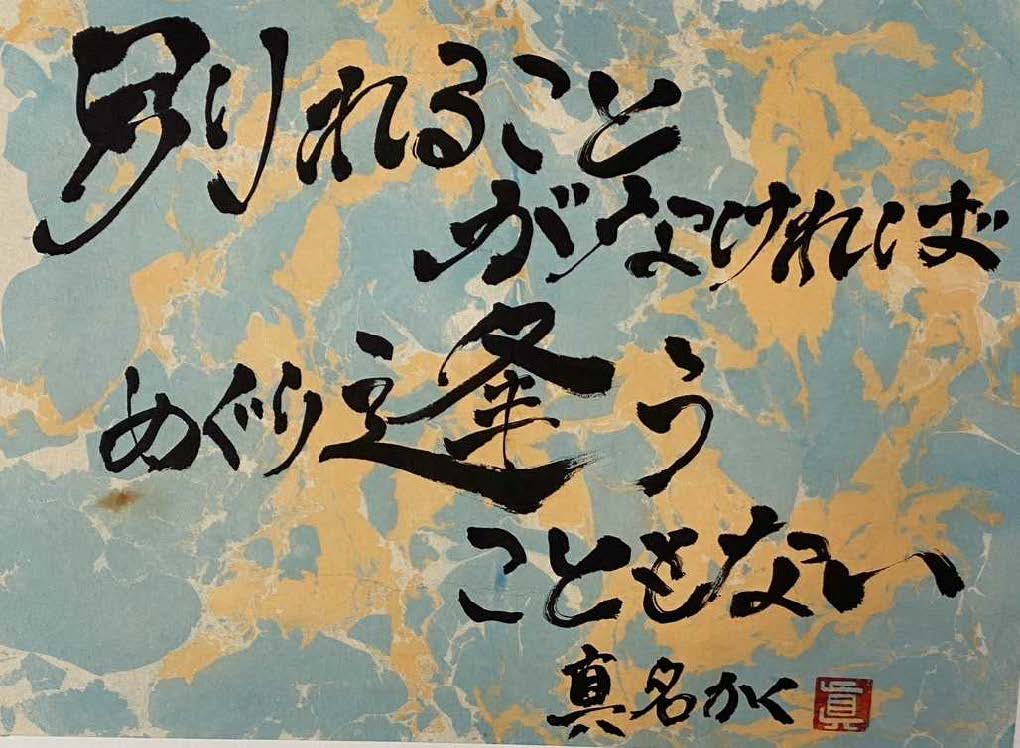 別れること
がなければ
めぐり逢う
こともない
真名かく
眞